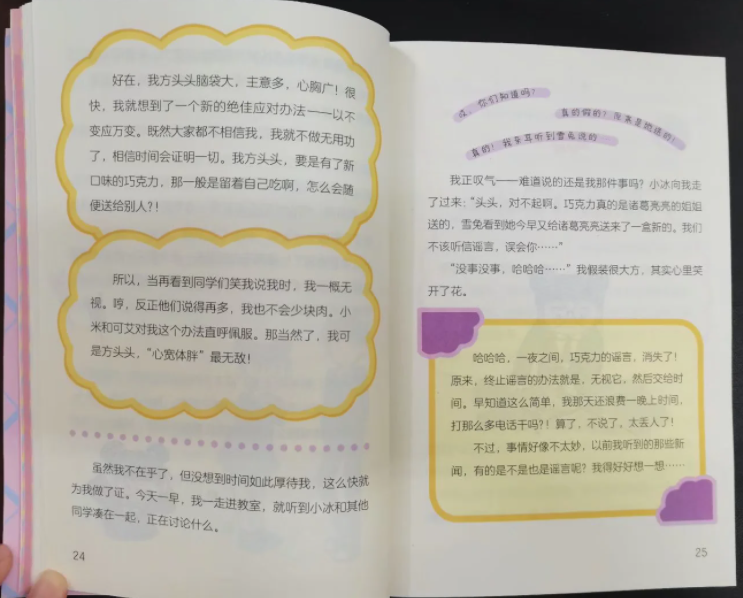 好在，我方头头脑袋大，主意多，心胸广！很
快，我就想到了一个新的绝佳应对办法——以不
变应万变。既然大家都不相信我，我就不做无用功
了，相信时间会证明一切。我方头头，要是有了新
口味的巧克力，那一般是留着自己吃啊，怎么会随
便送给别人？！
所以，当再看到同学们笑我说我时，我一概无
视。哼，反正他们说得再多，我也不会少块肉。小
米和可艾对我这个办法直呼佩服。那当然了，我可
是方头头，“心宽体胖”最无敌！
虽然我不在乎了，但没想到时间如此厚待我，这么快就
为我做了证。今天一早，我一走进教室，就听到小冰和其他
同学凑在一起，正在讨论什么。
24
，你们知道吗？
真的假的？原来是她送的！
真的！我亲耳听到雪兔说的
我正叹气——难道说的还是我那件事吗？小冰向我走
了过来：“头头，对不起啊。巧克力真的是诸葛亮亮的姐姐
送的，雪兔看到她今早又给诸葛亮亮送来了一盒新的。我们
不该听信谣言，误会你……”
“没事没事，哈哈哈……”我假装很大方，其实心里笑
开了花。
哈哈哈，一夜之间，巧克力的谣言，消失了！
原来，终止谣言的办法就是，无视它，然后交给时
间。早知道这么简单，我那天还浪费一晚上时间，
打那么多电话干吗？！算了，不说了，太丢人了！
不过，事情好像不太妙，以前我听到的那些新
闻，有的是不是也是谣言呢？我得好好想一想……
25